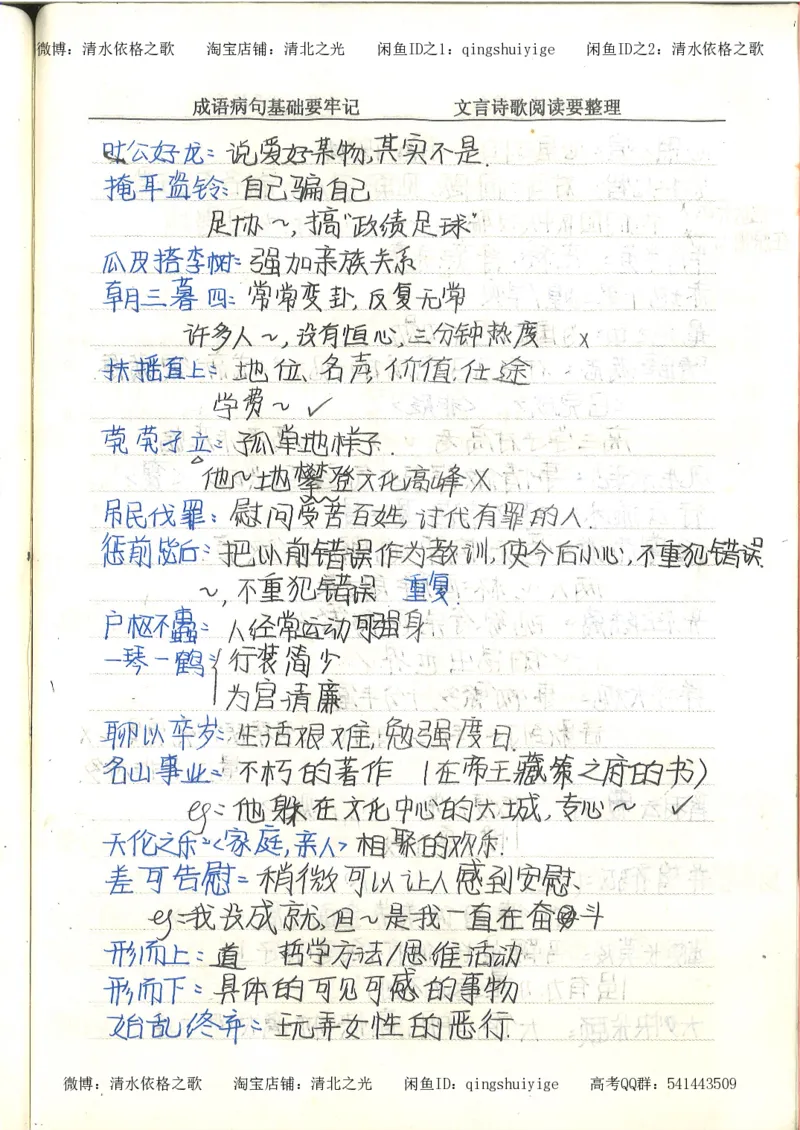 微博：清水依格之歌 淘宝店铺：清北之光 闲鱼ID之1：qingshuiyige 闲鱼ID之2：清水依格之歌
成语病句基础要牢记 文言诗歌阅读要整理
叶公好龙：说爱好某物，其实不是.
掩耳盗铃：自己骗自己
足协～，搞“政绩足球”
瓜皮搭李树：强加亲族关系
朝三暮四：常常变卦，反复无常
许多人～，没有恒心，三分钟热度 x
扶摇直上：地位、名声，价值，仕途
学费～ ✓
茕茕孑立：孤单地样子.
他～地攀登文化高峰 X
吊民伐罪：慰问受苦百姓，讨代有罪的人.
惩前毖后：把以前错误作为教训，使今后小心，不重犯错误.
～，不重犯错误 重复.
户枢不蠹：人经常运动可强身
一琴一鹤：行装简少
为官清廉
聊以卒岁：生活艰难，勉强度日.
名山事业：不朽的著作（在帝王藏策之府的书）
eg：他躲在文化中心的大城，专心～ ✓
天伦之乐：<家庭，亲人>相聚的欢乐.
差可告慰：稍微可以让人感到安慰.
eg：我没成就，但～是我一直在奋斗
形而上：道 哲学方法/思维活动
形而下：具体的可见可感的事物
始乱终弃：玩弄女性的恶行.
微博：清水依格之歌 淘宝店铺：清北之光 闲鱼ID：qingshuiyige 高考QQ群：541443509